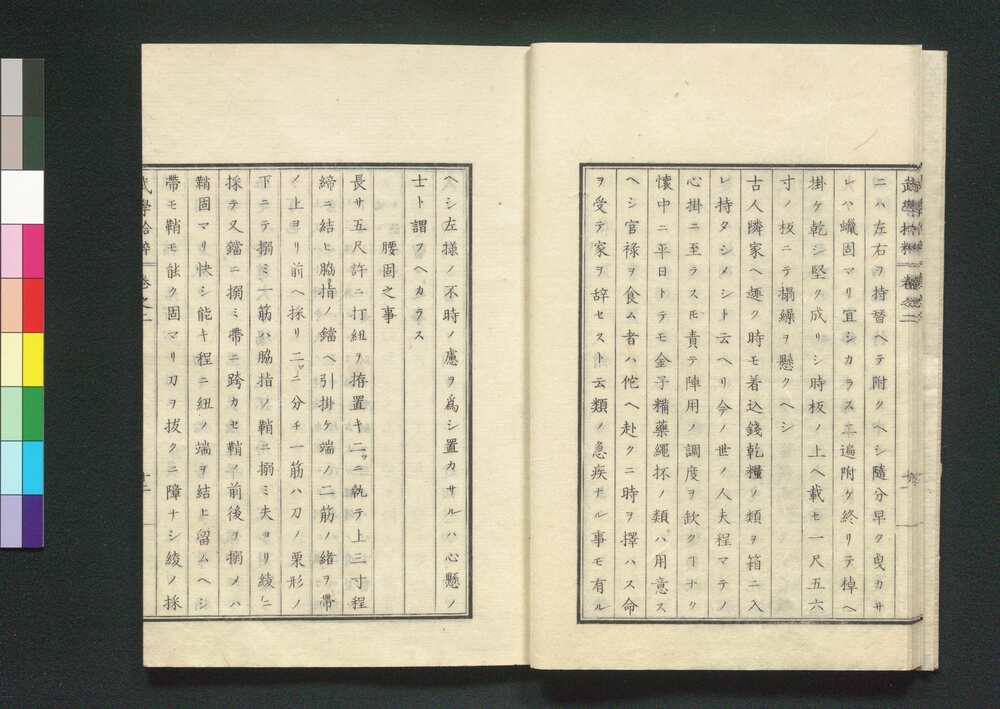 武學拾粹 卷之二
ニハ左右ヲ持替ヘテ附クヘシ隨分早ク曳カサ
レハ蠟固マリ宜シカラス三遍附ケ終リテ棹ヘ
掛ケ乾シ堅ク成リシ時板ノ上ヘ載セ一尺五六
寸ノ板ニテ搨繰ヲ懸クヘシ
古人隣家ヘ趣ク時モ着込錢乾糧ノ類ヲ箱ニ入
レ持タシメシト云ヘリ今ノ世ノ人夫程マテノ
心掛ニ至ラス𪜈責テ陣用ノ調度ヲ欽クヿナク
懷中ニ平日トテモ金子糒藥繩抔ノ類ハ用意ス
ヘシ官祿ヲ食ム者ハ佗ヘ赴クニ時ヲ擇ハス命
ヲ受テ家ヲ辞セスト云類ノ急疾ナル事モ有ル
ヘシ左樣ノ不時ノ慮ヲ爲シ置カサルハ心懸ノ
士ト謂フヘカラス
腰固之事
長サ五尺許ニ打紐ヲ拵置キ二ツニ執テ上三寸程
締ニ結ヒ脇指ノ鐺ヘ引掛ケ端ノ二筋ノ緒ヲ帶
ノ上ヨリ前ヘ採リ二ツニ分チ一筋ハ刀ノ栗形ノ
下ニテ搦ミ一筋ハ脇指ノ鞘ニ搦ミ夫ヨリ綾ニ
採テ又鐺ニ搦ミ帶ニ跨カセ鞘ノ前後ヲ搦メハ
鞘固マリ快シ能キ程ニ紐ノ端ヲ結ヒ留ムヘシ
帶モ鞘モ能ク固マリ刀ヲ拔クニ障ナシ綾ノ採
武學拾粹 卷之二 十二